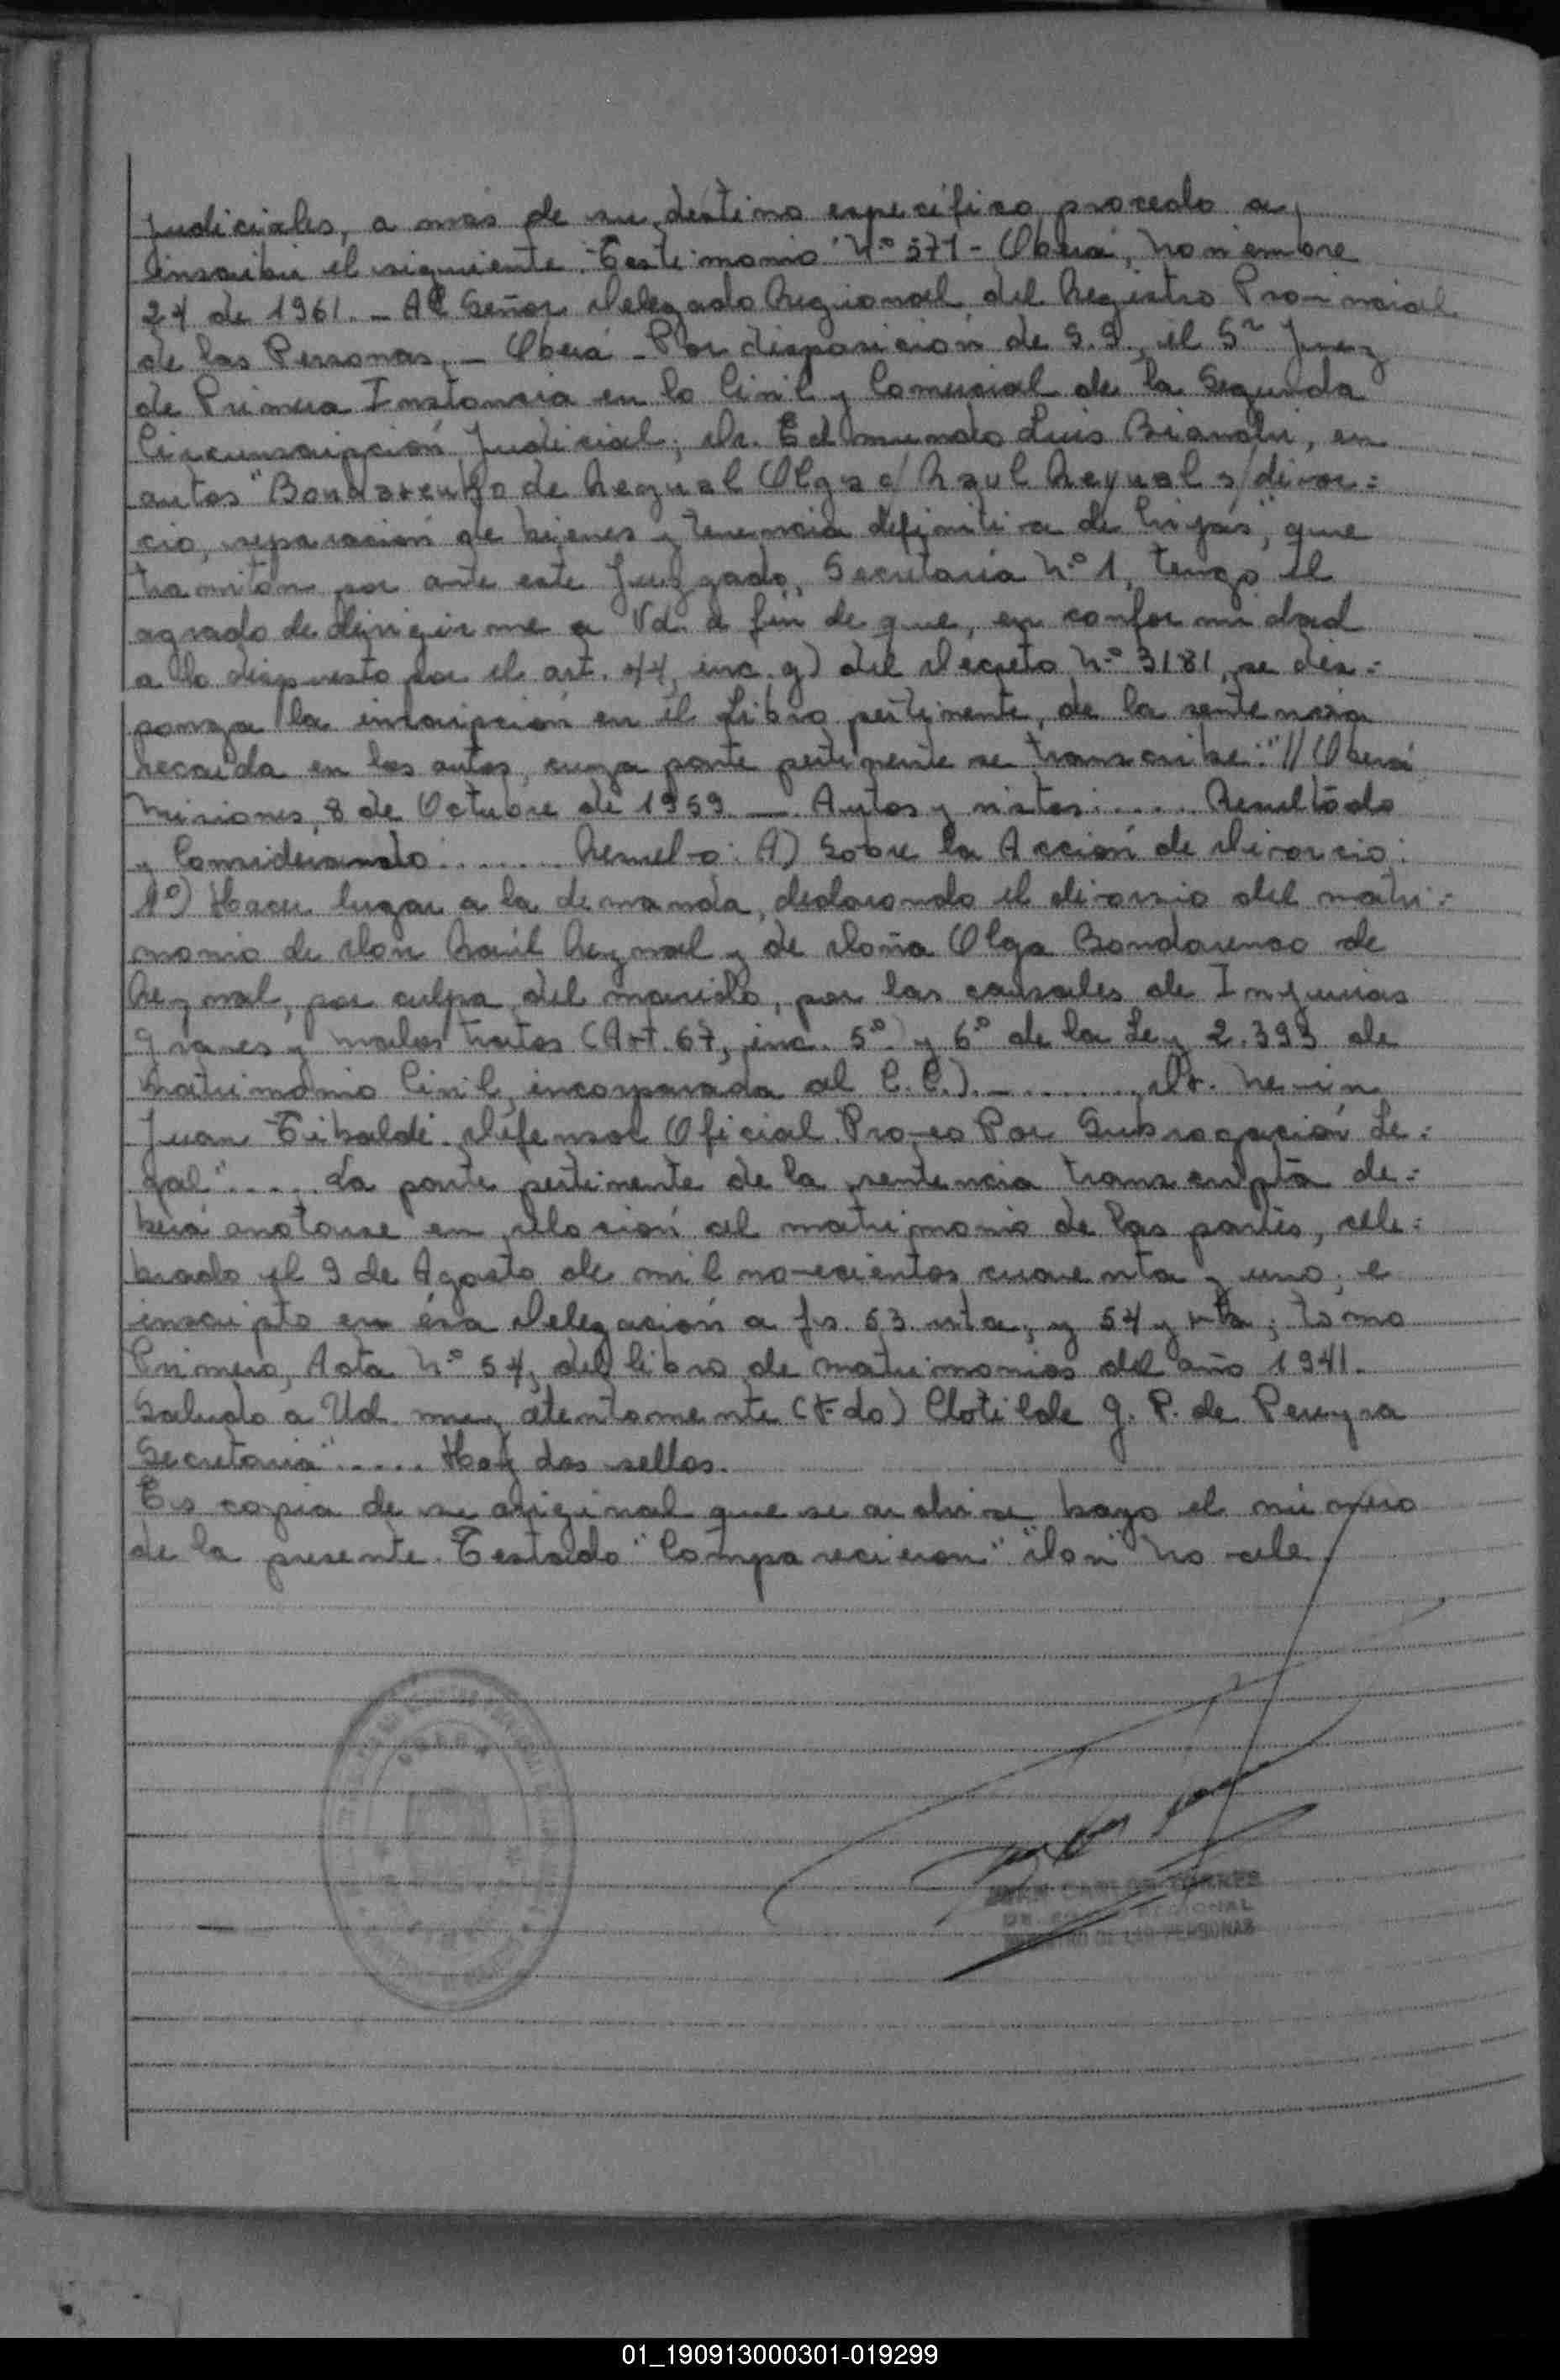 judiciales, a mas de su destino especifico, procedo a
inscribir el siguiente: Testimonio Nº 571 - Oberá, Noviembre
24 de 1961. - Al Señor Delegado Regional del Registro Provincial
de las Personas. - Oberá - Por disposición de S.S., el Sr Juez
de Primera Instancia en lo Civil y Comercial de la Segunda
Circunscripción Judicial, Dr. Edmundo Luis Bianchi, en
autos "Bondarenko de Reynal Olga c/ Raul Reynal s/ divor:
cio, separación de bienes y tenencia definitiva de hijos", que
tramitan por ante este Juzgado, Secretaría Nº 1, tengo el
agrado de dirigirme a Vd. a fin de que, en conformidad
a lo dispuesto por el art. 44, inc. g) del Decreto Nº 3181, se dis:
ponga la inscripción en el Libro pertinente, de la sentencia
recaída en los autos, cuya parte pertinente se transcribe: "// Oberá
Misiones, 8 de Octubre de 1959 —. Autos y vistos: ..... Resultado
y Considerando: ....... Resuelvo: A) Sobre la Acción de Divorcio:
1º) Hacer lugar a la demanda, declarando el divorcio del matri:
monio de Don Raúl Reynal y de Doña Olga Bondarenco de
Reynal, por culpa del marido, por las causales de Injurias
graves y malos tratos (Art. 67, inc. 5º y 6º de la Ley 2.393 de
Matrimonio Civil, incorporada al C.C.). - ........, Dr. Nevin
Juan Tibaldi. Defensor Oficial. Proveo Por Subrogación Le:
gal" ..... La parte pertinente de la sentencia transcripta de:
berá anotarse en relación al matrimonio de las partes, cele:
brado el 9 de Agosto de mil novecientos cuarenta y uno, e
inscripto en ésa Delegación a fs. 53 vta, y 54 y vta; tomo
Primero, Acta Nº 54, del libro de matrimonios del año 1941.
Saludo a Ud. muy atentamente (Fdo) Clotilde G. P. de Pereyra
Secretaria" ..... Hay dos sellos.
Es copia de su original que se archiva bajo el número
de la presente. Testado "Comparecieron" "don" No vale.
JUAN CARLOS TORRES
REGIONAL
REGISTRO DE LAS PERSONAS
01_190913000301-019299